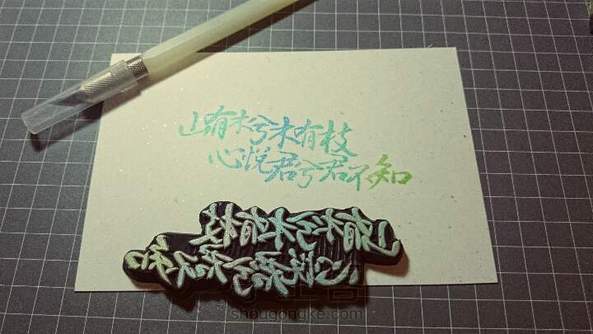 山有木兮木有枝
心悦君兮君不知
shougongke.com